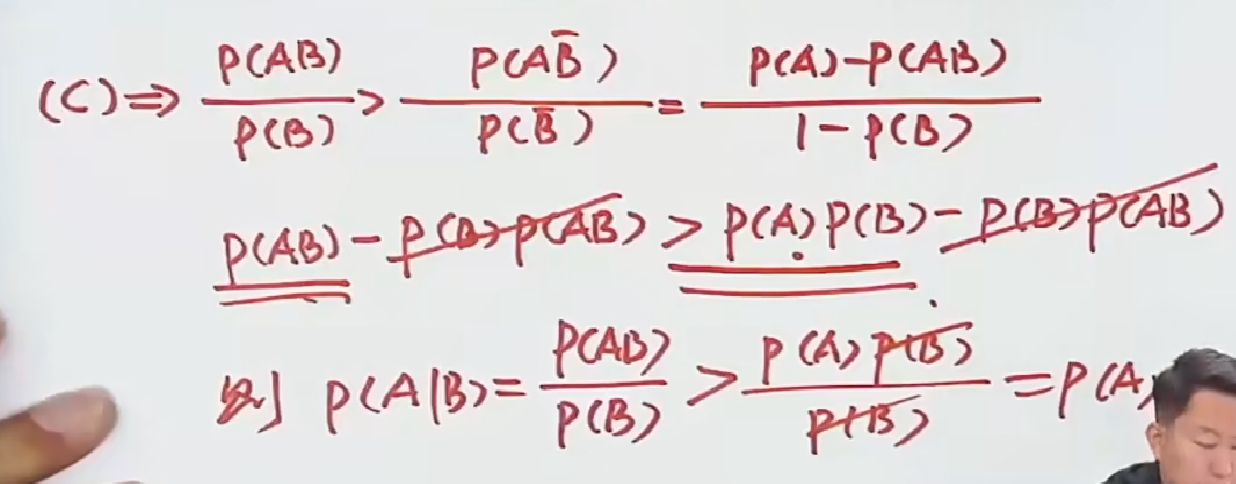 (C)⇒ P(AB)/P(B) > P(AB̄)/P(B̄) = P(A)-P(AB)/1-P(B)
P(AB) - P(B)P(AB) > P(A)P(B) - P(B)P(AB)
则 P(A|B) = P(AB)/P(B) > P(A)P(B)/P(B) = P(A